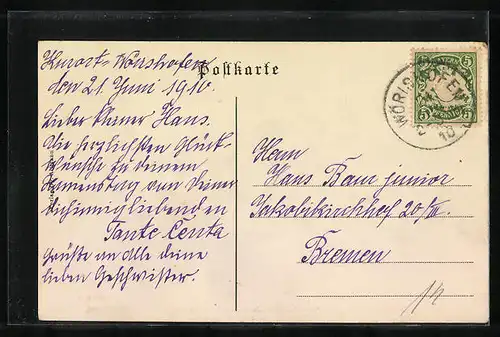 Kurort-Wörishofen
den 21. Juni 1910.
Postkarte
Lieber kleiner Hans.
Die herzlichsten Glück-
wünsche zu deinem
Namenstag von Deiner
dich innigliebenden
Tante Centa
Grüße an alle deine
lieben Geschwister.
WÖRISHOFEN
10
BAYERN
5 5
5 5
PFENNIG
Herrn
Hans Baur junior
Jakobikirchhof 20/III
Bremen